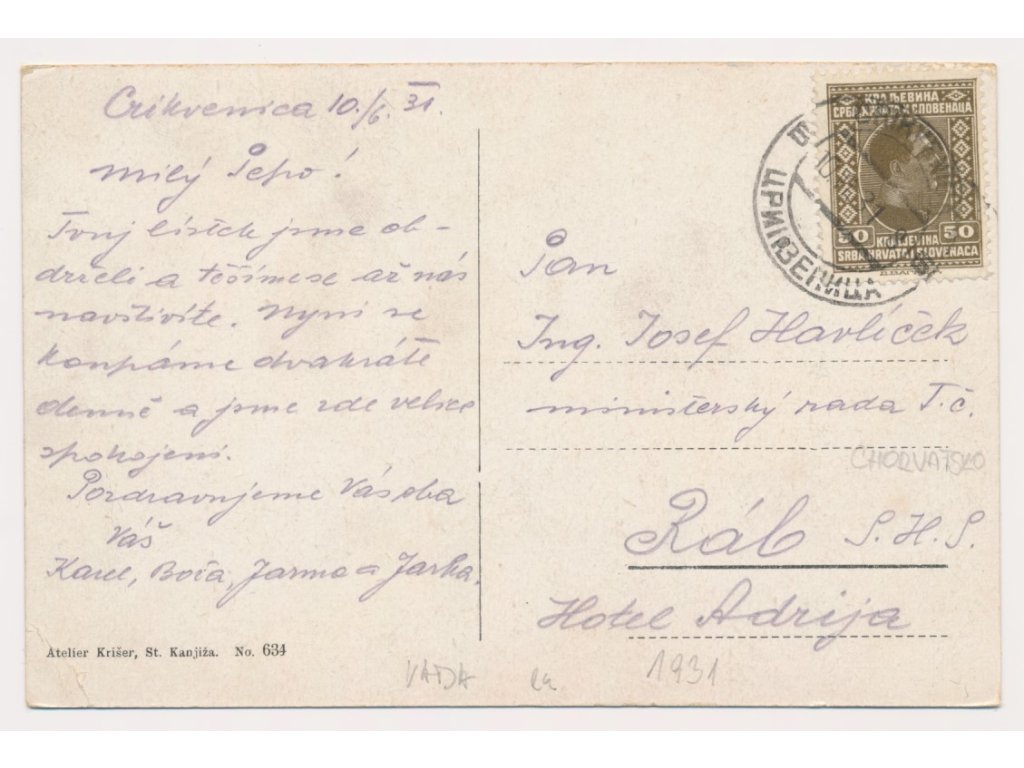 Crikvenica 10./6. 31.
milý Pepo!
Tvůj lístek jsme ob-
drželi a těšíme se až nás
navštívíte. Nyní se
koupáme dvakráte
denně a jsme zde velice
spokojeni.
Pozdravujeme Vás oba
Váš
Karel, Boža, Jarma a Jarka.
Atelier Krišer, St. Kanjiža. No. 634
КРАЉЕВИНА
СРБА ХРВАТА СЛОВЕНАЦА
50 KRALJEVINA 50
SRBA HRVATA SLOVENACA
ЦРИКВЕНИЦА
Pan
Ing. Josef Havlíček
ministerský rada T.č.
CHORVATSKO
Ráb S.H.S.
Hotel Adrija
1931